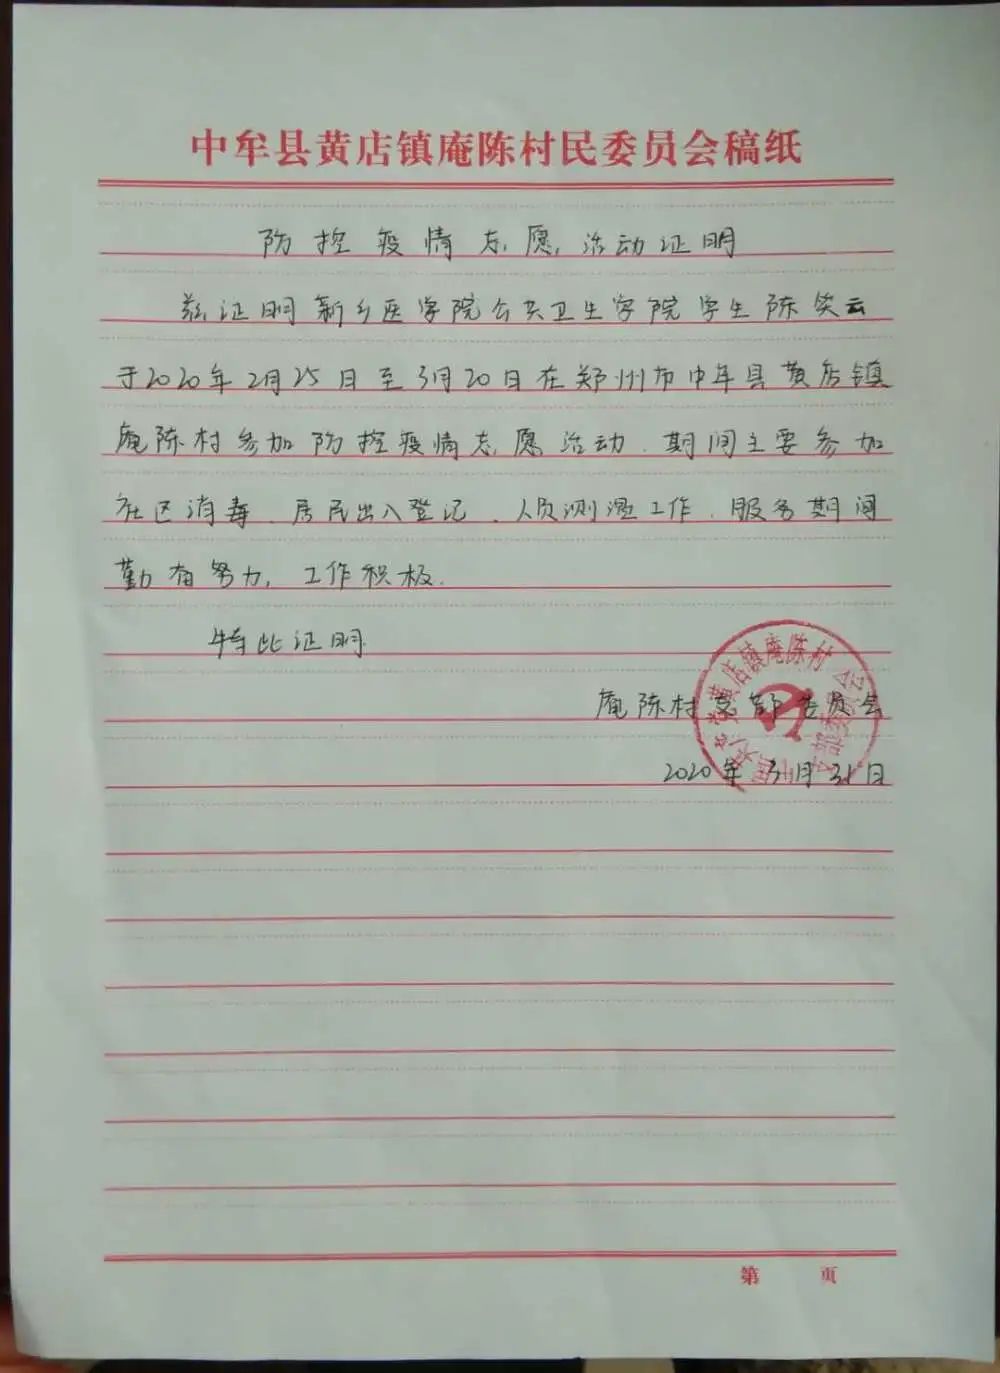 中牟县黄店镇庵陈村民委员会稿纸
防控疫情志愿活动证明
兹证明新乡医学院公共卫生学院学生陈笑云
于2020年2月25日至3月20日在郑州市中牟县黄店镇
庵陈村参加防控疫情志愿活动.期间主要参加
社区消毒、居民出入登记、人员测温工作.服务期间
勤奋努力,工作积极.
特此证明
庵陈村支部委员会
2020年3月31日
黄店镇庵陈村
支部委员会
第 页